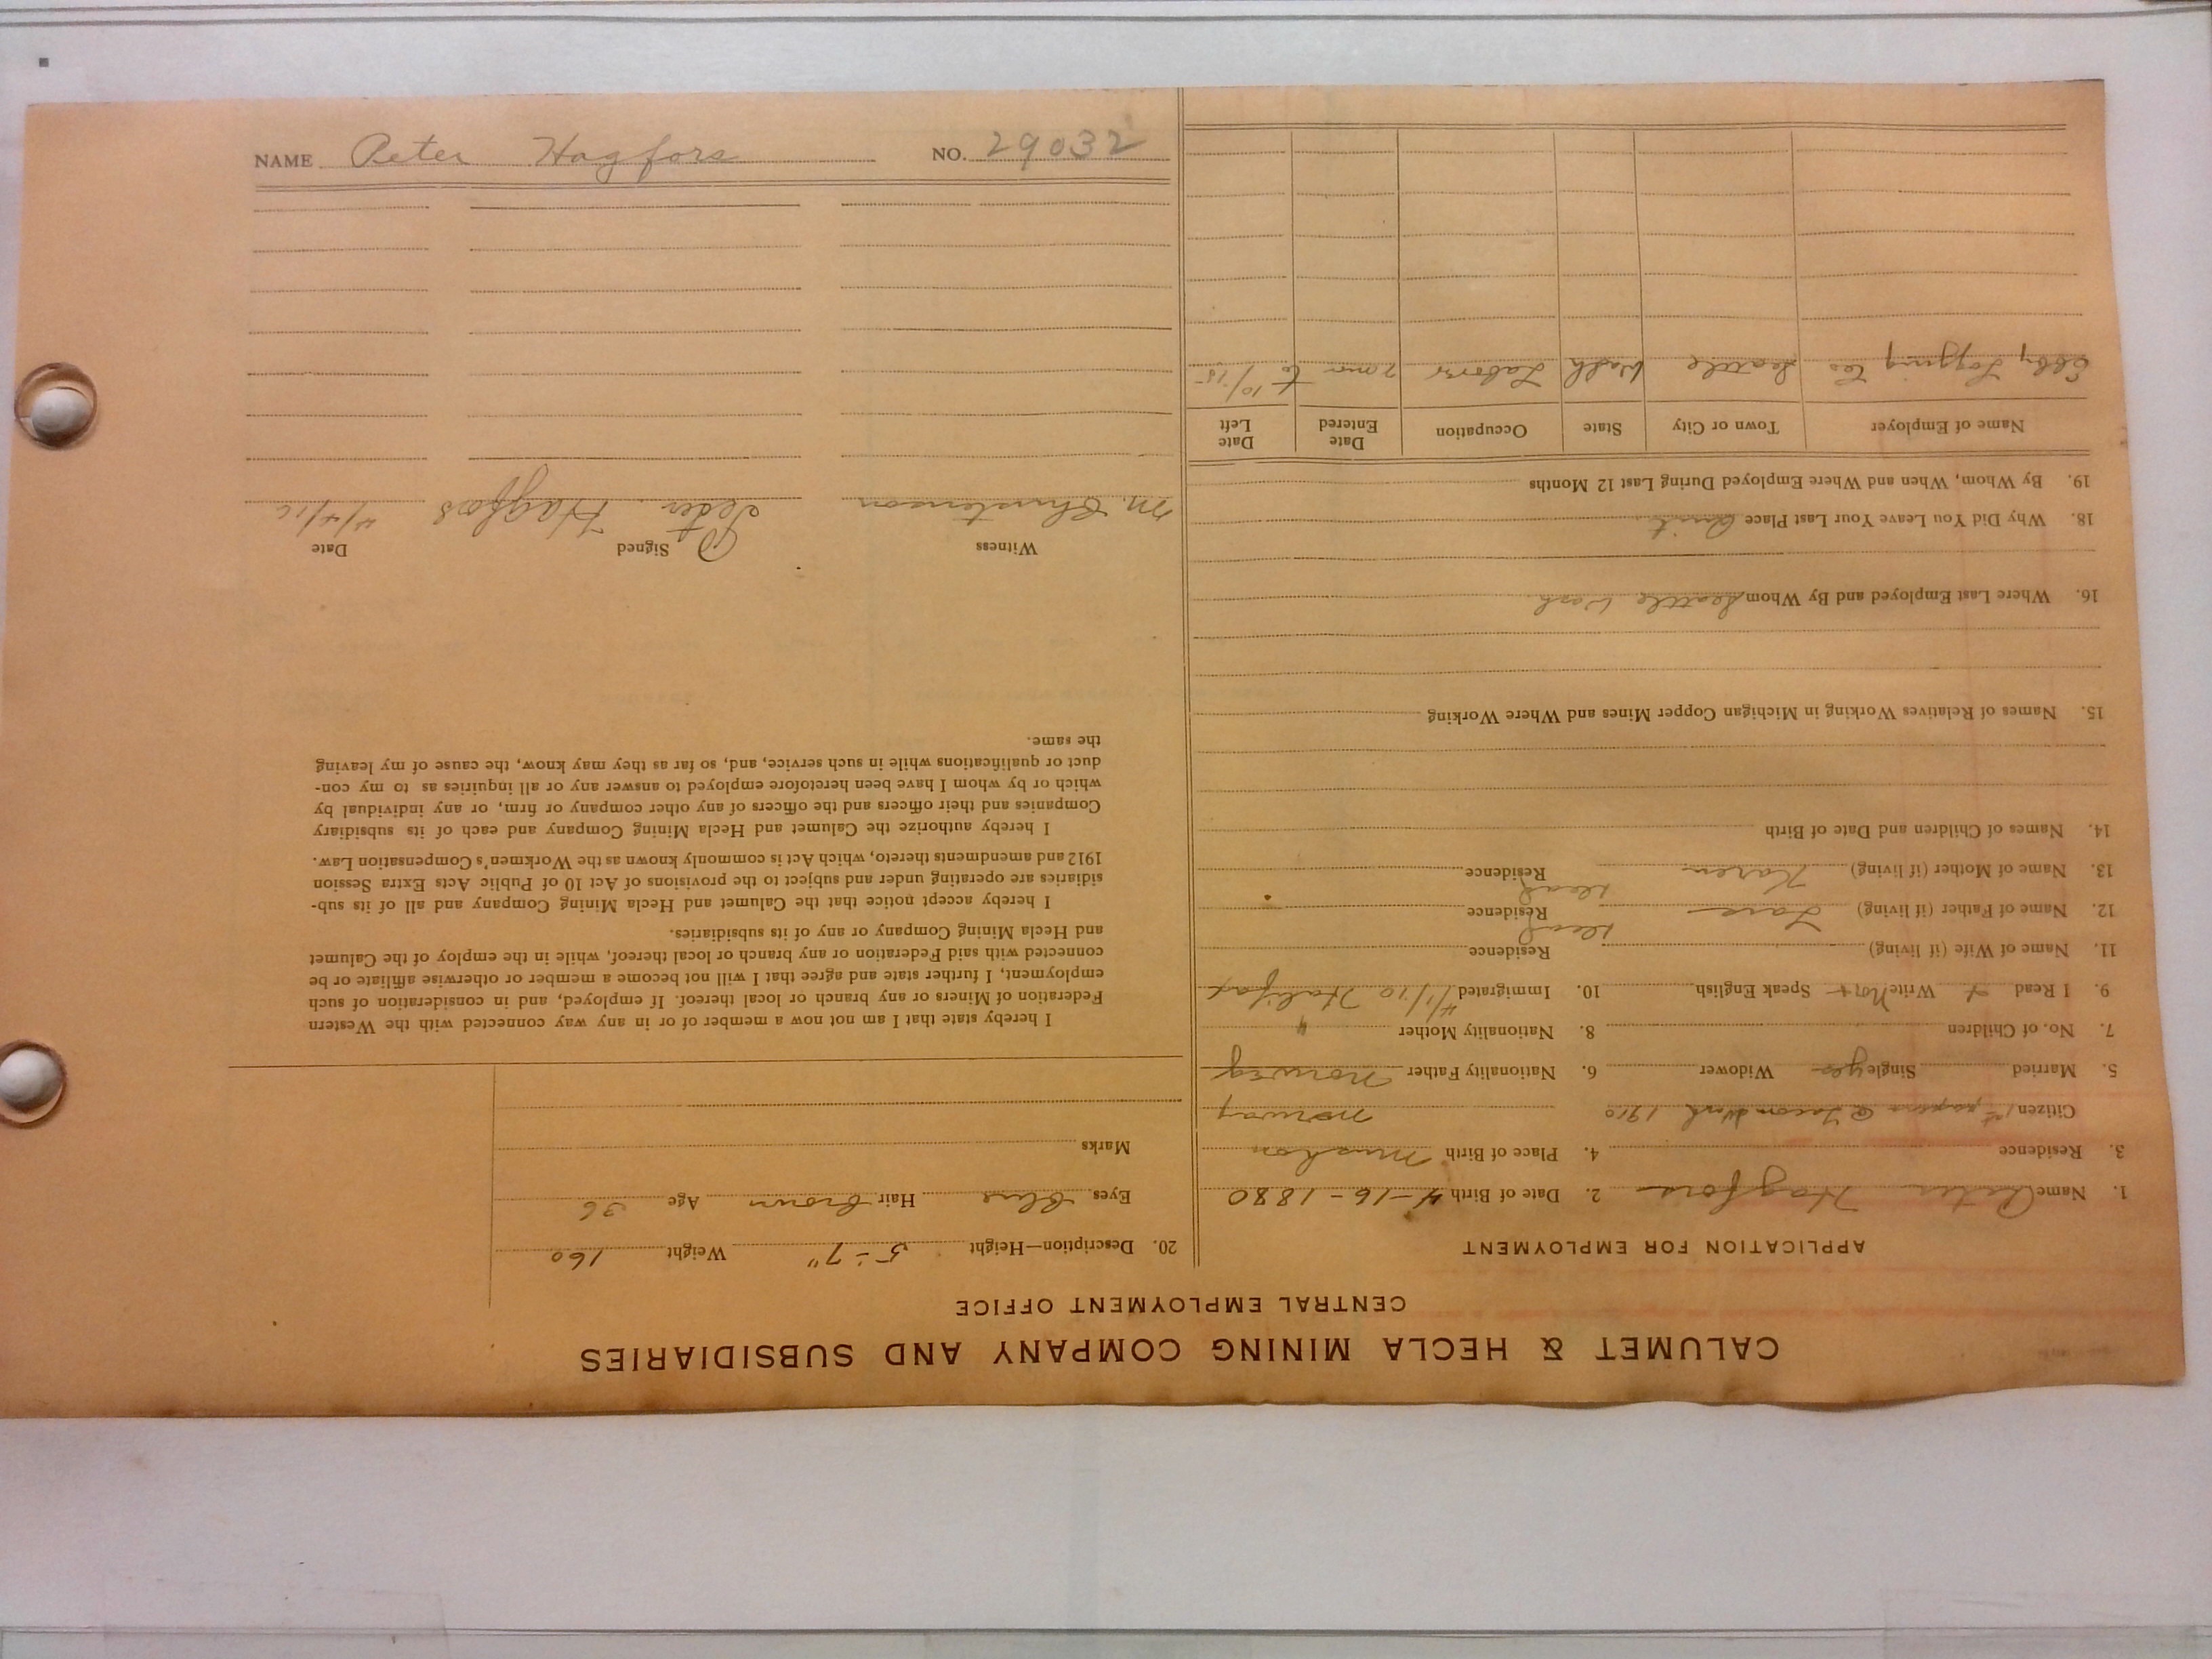 CALUMET & HECLA MINING COMPANY AND SUBSIDIARIES
CENTRAL EMPLOYMENT OFFICE
APPLICATION FOR EMPLOYMENT
1. Name Peter Hagfors 2. Date of Birth 4-16-1880
3. Residence 4. Place of Birth
Citizen 1st papers @ Wash 1910 Norway
5. Married Single yes Widower 6. Nationality Father Norweg
7. No. of Children 8. Nationality Mother "
9. I Read Write Speak English 10. Immigrated 4/1/10 Halifax
11. Name of Wife (if living) Residence
12. Name of Father (if living) Lars Residence dead
13. Name of Mother (if living) Karen Residence dead
14. Names of Children and Date of Birth
15. Names of Relatives Working in Michigan Copper Mines and Where Working
16. Where Last Employed and By Whom Seattle Wash.
18. Why Did You Leave Your Last Place Quit
19. By Whom, When and Where Employed During Last 12 Months
Name of Employer Town or City State Occupation Date Entered Date Left
Logging Co Seattle Wash Labor 2 mos to 10/15
20. Description—Height 5-7" Weight 160
Eyes Blue Hair brown Age 36
Marks
I hereby state that I am not now a member of or in any way connected with the Western
Federation of Miners or any branch or local thereof. If employed, and in consideration of such
employment, I further state and agree that I will not become a member or otherwise affiliate or be
connected with said Federation or any branch or local thereof, while in the employ of the Calumet
and Hecla Mining Company or any of its subsidiaries.
I hereby accept notice that the Calumet and Hecla Mining Company and all of its sub-
sidiaries are operating under and subject to the provisions of Act 10 of Public Acts Extra Session
1912 and amendments thereto, which Act is commonly known as the Workmen's Compensation Law.
I hereby authorize the Calumet and Hecla Mining Company and each of its subsidiary
Companies and their officers and the officers of any other company or firm, or any individual by
which or by whom I have been heretofore employed to answer any or all inquiries as to my con-
duct or qualifications while in such service, and, so far as they may know, the cause of my leaving
the same.
Witness Signed Date
M. Christenson Peder Hagfors 4/4/16
NAME Peter Hagfors NO. 29032